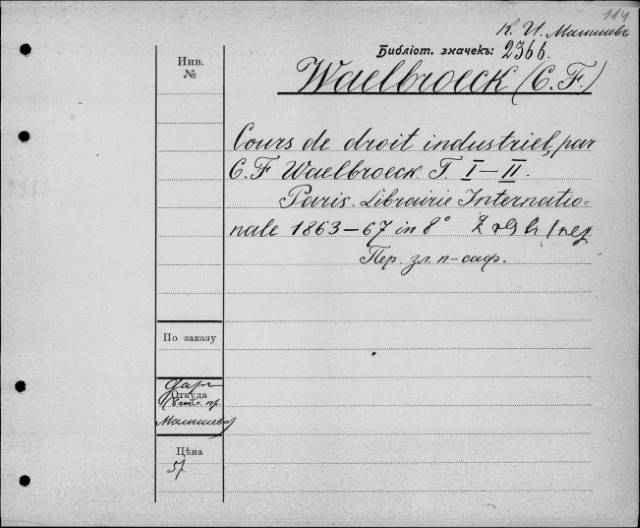 114
К. И. Малышевъ
Библіот. значекъ: 2366.
Инв.
№
Waelbroeck (C. F.)
Cours de droit industriel, par
C. F Waelbroeck T. I–II.
Paris. Librairie Internatio-
nale 1863–67 in 8°
Пер. зл. п-саф.
По заказу
Даръ
Откуда
Малышева
Цѣна
5/